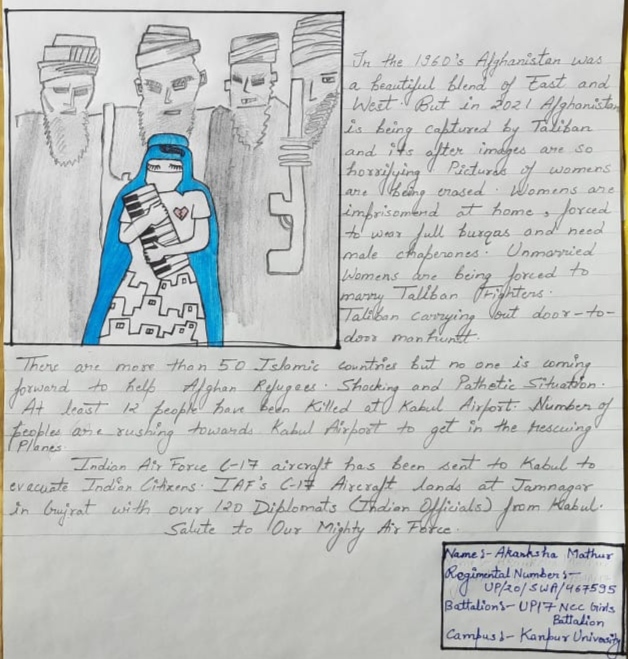 In the 1960's Afghanistan was
a beautiful blend of East and
West. But in 2021 Afghanistan
is being captured by Taliban
and its after images are so
horrifying Pictures of womens
are being erased. Womens are
imprisomend at home, forced
to wear full burqas and need
male chaperones. Unmarried
Womens are being forced to
marry Taliban Fighters.
Taliban carrying out door-to-
door manhunt.
There are more than 50 Islamic countries but no one is coming
forward to help Afghan Refugees. Shocking and Pathetic Situation.
At least 12 people have been Killed at Kabul Airport. Number of
peoples are rushing towards Kabul Airport to get in the rescuing
Planes.
Indian Air Force C-17 aircraft has been sent to Kabul to
evacuate Indian Citizens. IAF's C-17 Aircraft lands at Jamnagar
in Gujrat with over 120 Diplomats (Indian Officials) from Kabul.
Salute to Our Mighty Air Force.
Name:- Akanksha Mathur
Regimental Number:-
UP/20/SWA/467595
Battalion:- UP17 NCC Girls
Battalion
Campus:- Kanpur University